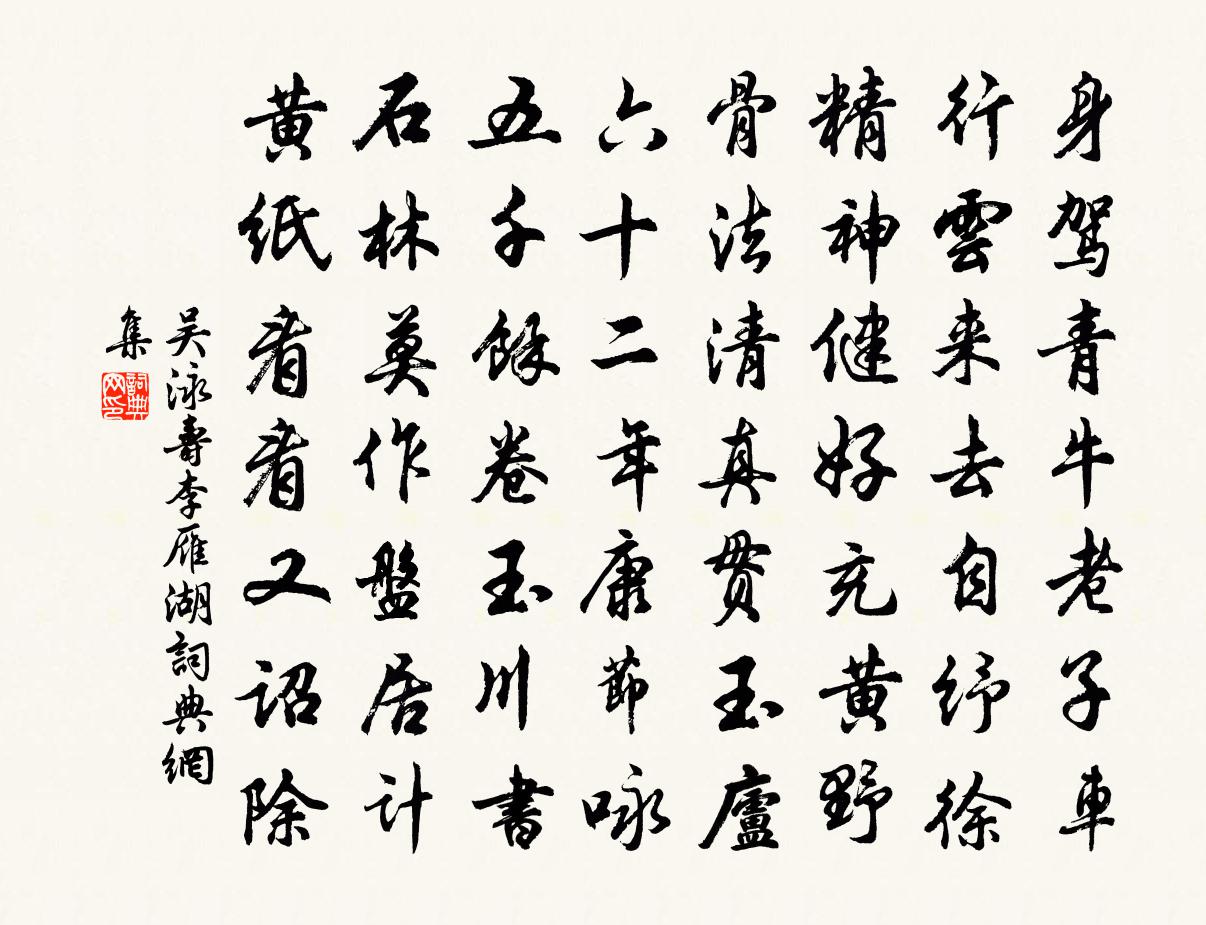 身駕青牛老子車
行雲来去自纾徐
精神健好充黄野
骨法清真貫玉廬
六十二年康節咏
五千餘卷玉川書
石林莫作盤居計
黄紙看看又詔除
吴泳壽李雁湖詞典網
集
詞典網印